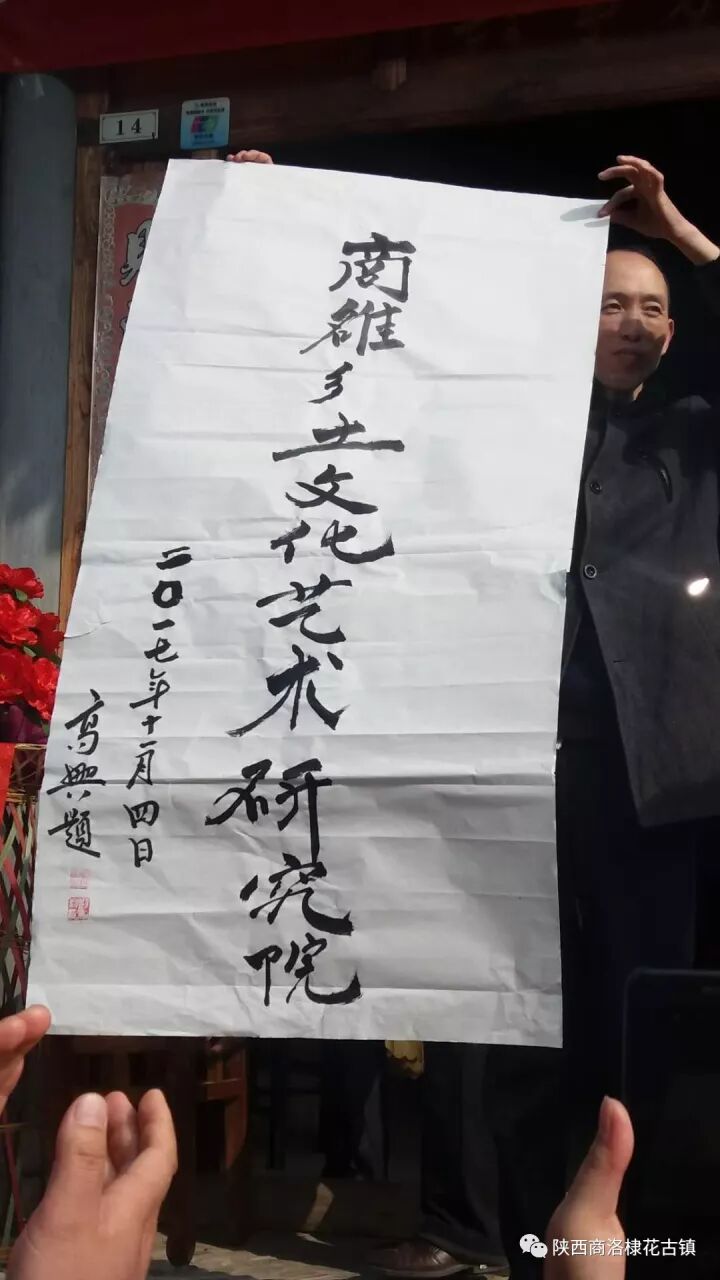 14
商雒乡土文化艺术研究院
二〇一七年十一月四日
高興題
陕西商洛棣花古镇